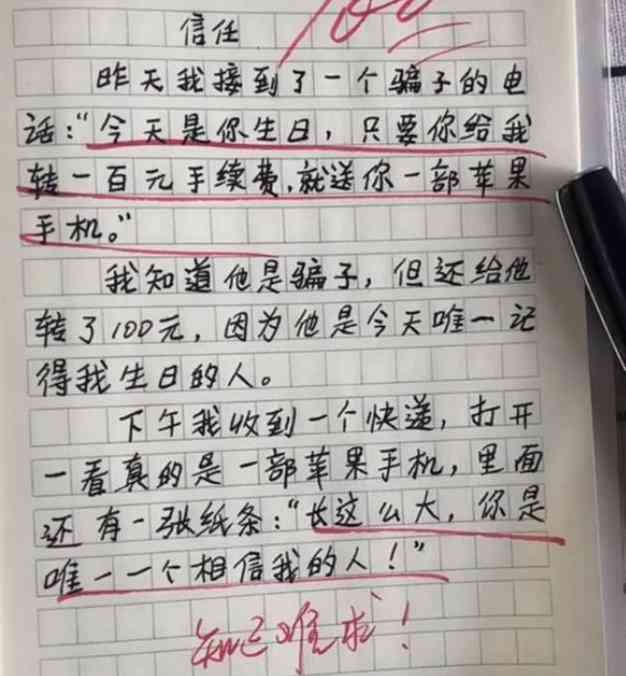 100
信任
昨天我接到了一个骗子的电
话:“今天是你生日,只要你给我
转一百元手续费,就送你一部苹果
手机。”
我知道他是骗子,但还给他
转了100元,因为他是今天唯一记
得我生日的人。
下午我收到一个快递,打开
一看真的是一部苹果手机,里面
还有一张纸条:“长这么大,你是
唯一一个相信我的人!”
知己难求!